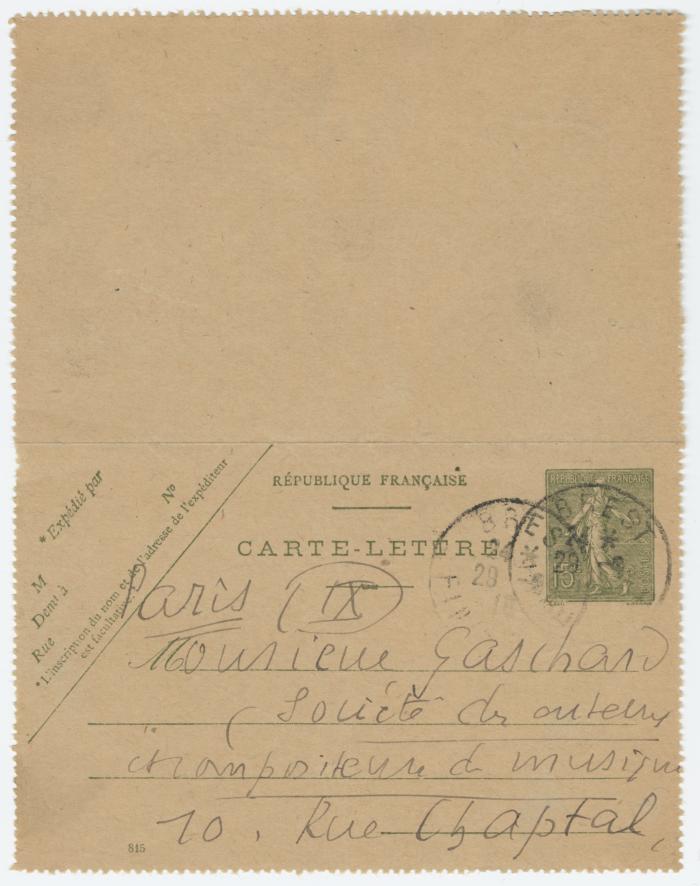 RÉPUBLIQUE FRANÇAISE
CARTE-LETTRE
* Expédié par
M
Demt à
Rue
No
* L'inscription du nom et de l'adresse de l'expéditeur
est facultative.
RÉPUBLIQUE FRANÇAISE
15
BREST
29
BREST
29
Paris (IX
Monsieur Gaschard
(Société des auteurs
et compositeurs de musique
10. Rue Chaptal,
815